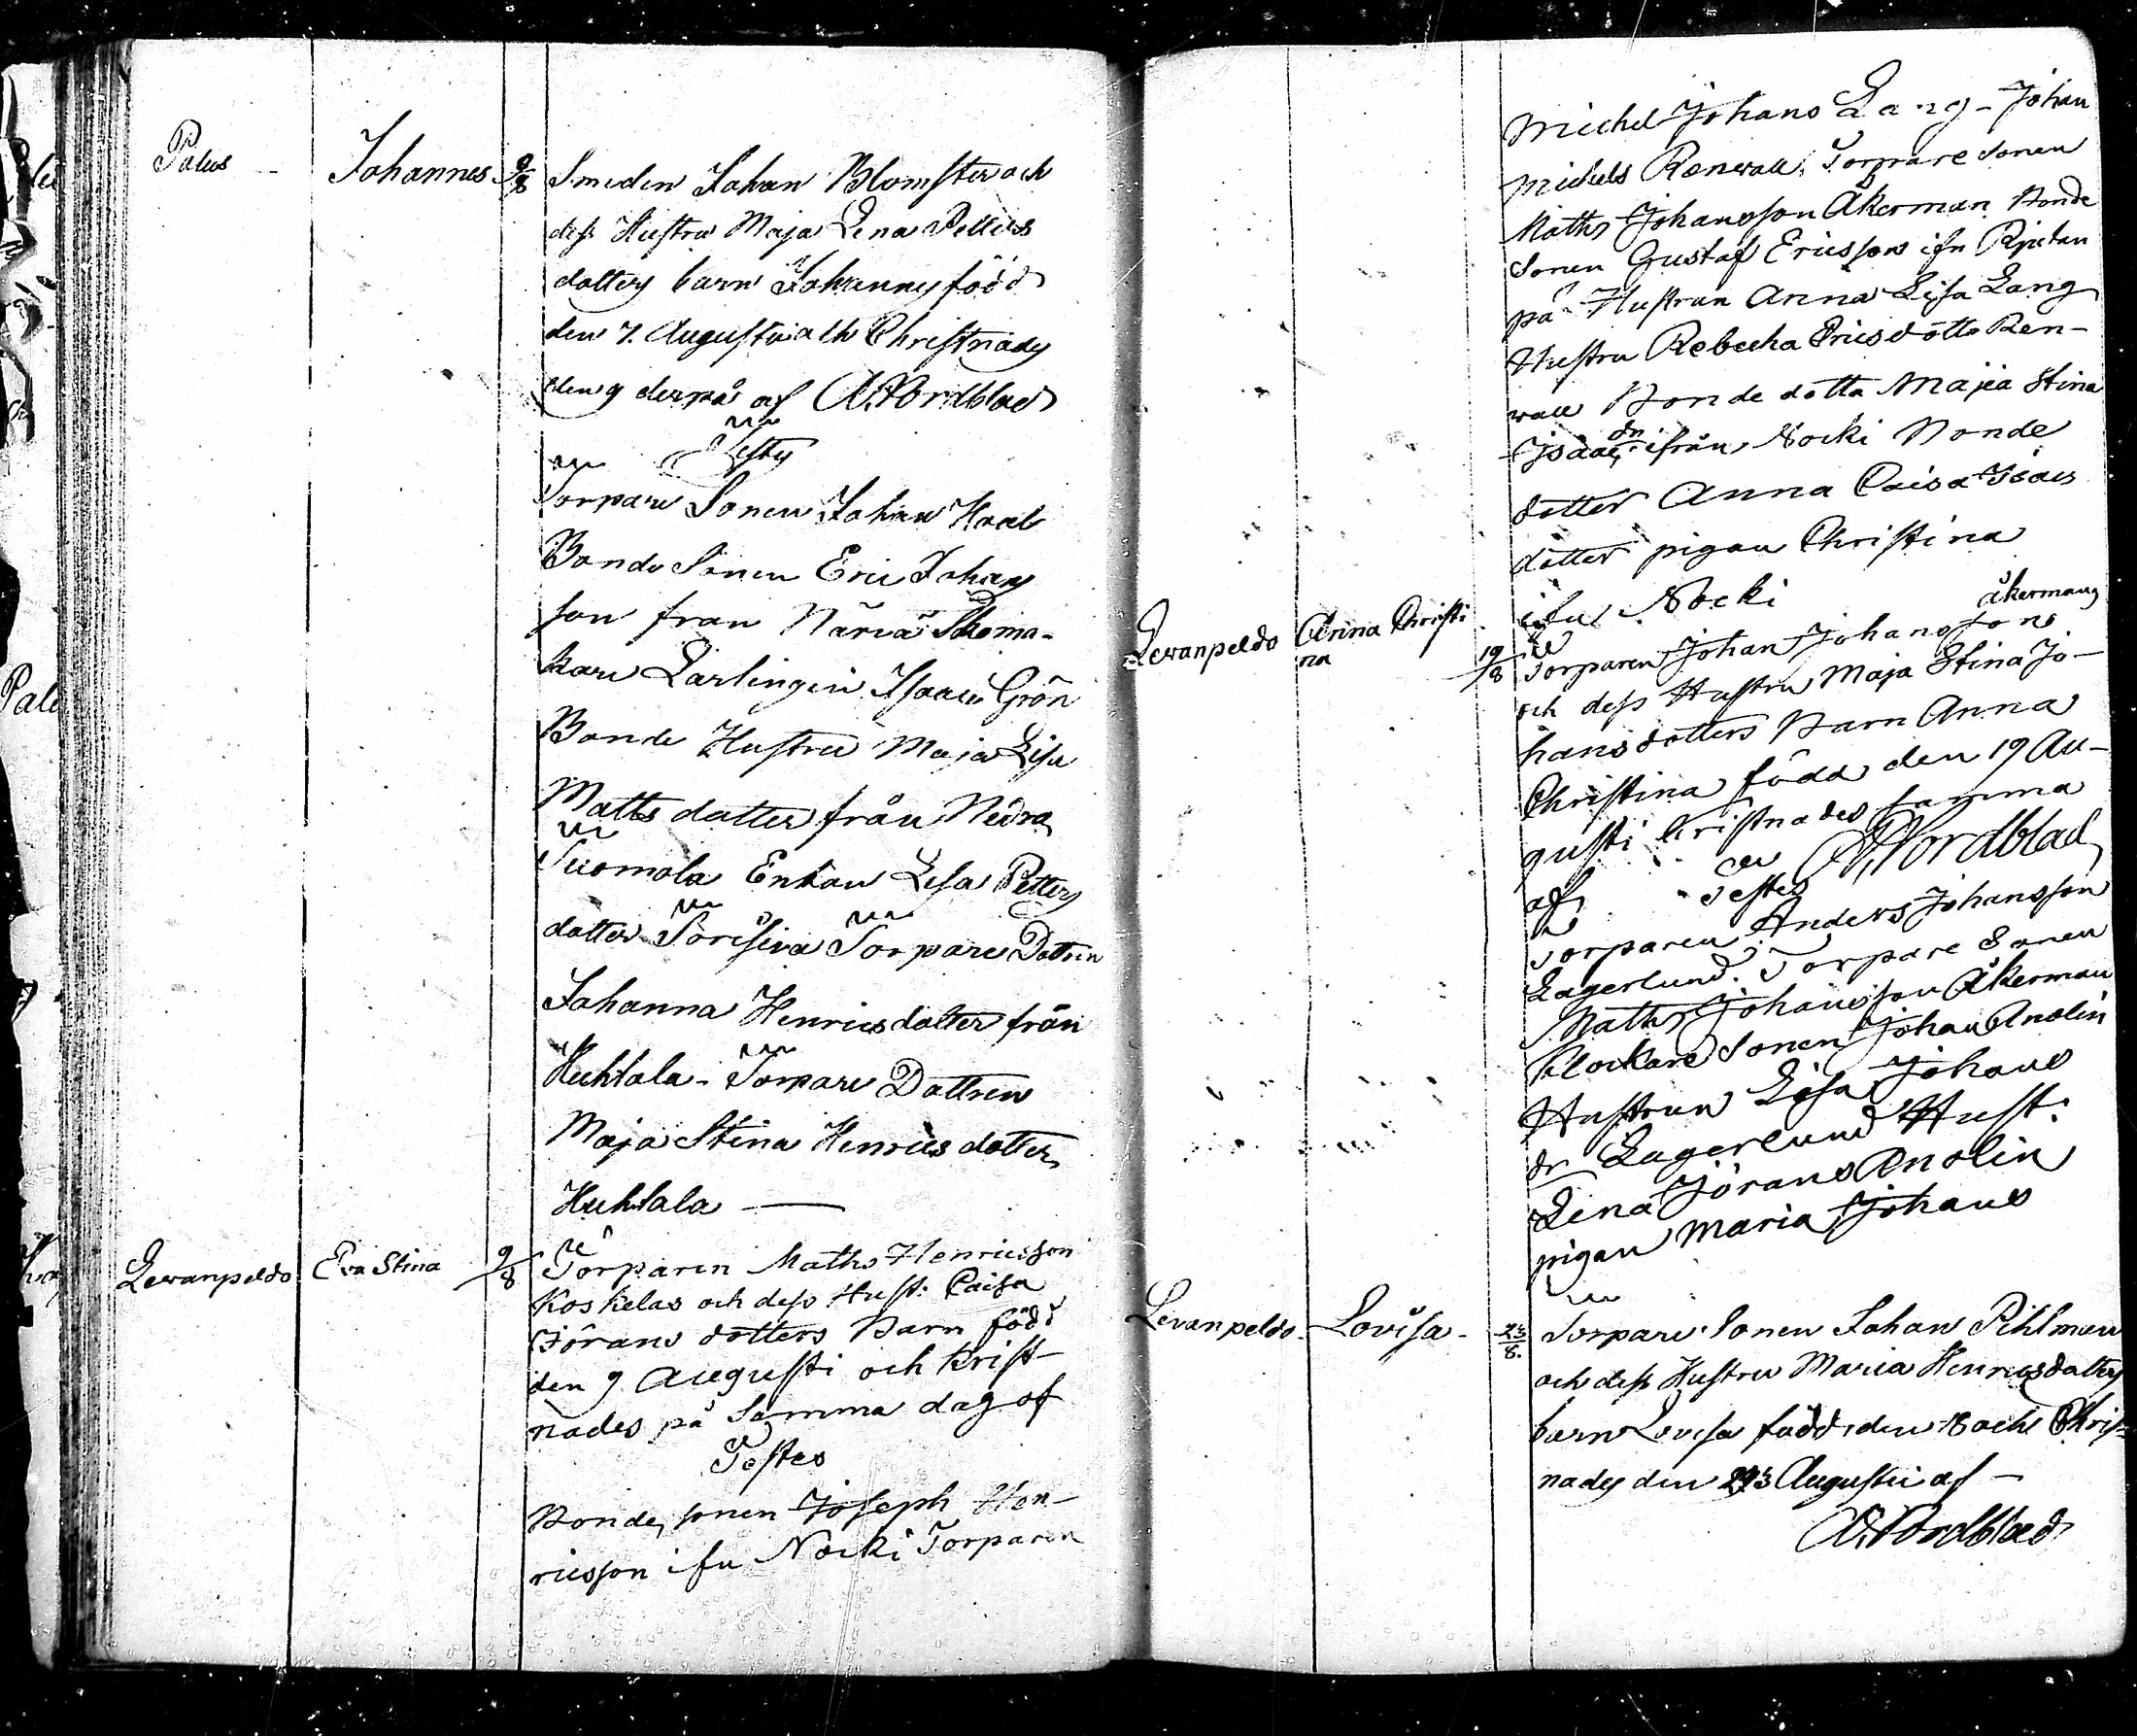 Palus - Johannes 9/8 Smeden Johan Blomster och
dess Hustru Maja Lena Petters
dotters barn Johannes född
den 7. Augusti och Christnades
den 9 derpå af A. Nordblad
Testes
Torpare Sonen Johan
Bonde Sonen Eric Johans
son från Närvä
Lärlingen Isaac Grön
Bonde Hustru Maja Lisa
Matts dotter från Nedra
Suomola Enkan Lisa Petters
dotter Torpare Dottren
Johanna Henricsdotter från
Huhtala - Torpare Dottren
Maja Stina Henrics dotter
Huhtala —
Levanpeldo Eva Stina 9/8 Torparen Maths Henricsson
Koskelas och dess Hust: Caisa
Jörans dotters Barn född
den 9 Augusti och Krist-
nades på Samma dag af
Testes
Bonde sonen Joseph Hen-
ricsson ifn Nocki Torparen
Michel Johans Lang - Johan
Michels Renvall, Torpare Sonen
Maths Johansson Åkerman Bonde
Sonen Gustaf Ericsson ifn
på Hustrun Anna Lisa Lang
Hustru Rebecka Ericsdotter Ren-
wall Bonde dotter Maja Stina
Isaacs dr ifrån Nocki Bonde
dotter Anna Caisa Isacs
dotter pigan Christina
ifn Nocki
Åkermans
Levanpeldo Anna Christi
na 19/8 Torparen Johan Johanssons
och dess Hustru Maja Stina Jo-
hansdotters Barn Anna
Christina född den 19 Au-
gusti kristnades samma
af A. Nordblad
Testes
Torparen Anders Johansson
Lagerlund. Torpare Sonen
Maths Johansson Åkerman
Klockare Sonen Johan Anolin
Hustrun Lisa Johans
dr Lagerlund Hust:
Lena Jörans Anolin
pigan Maria Johans
Levanpeldo - Lovisa - 23/8. Torpare Sonen Johan Pihlman
och dess Hustru Maria Henricsdotters
barn Lovisa född den 18 och Chris-
nades den 23 Augusti af —
A. Nordblad